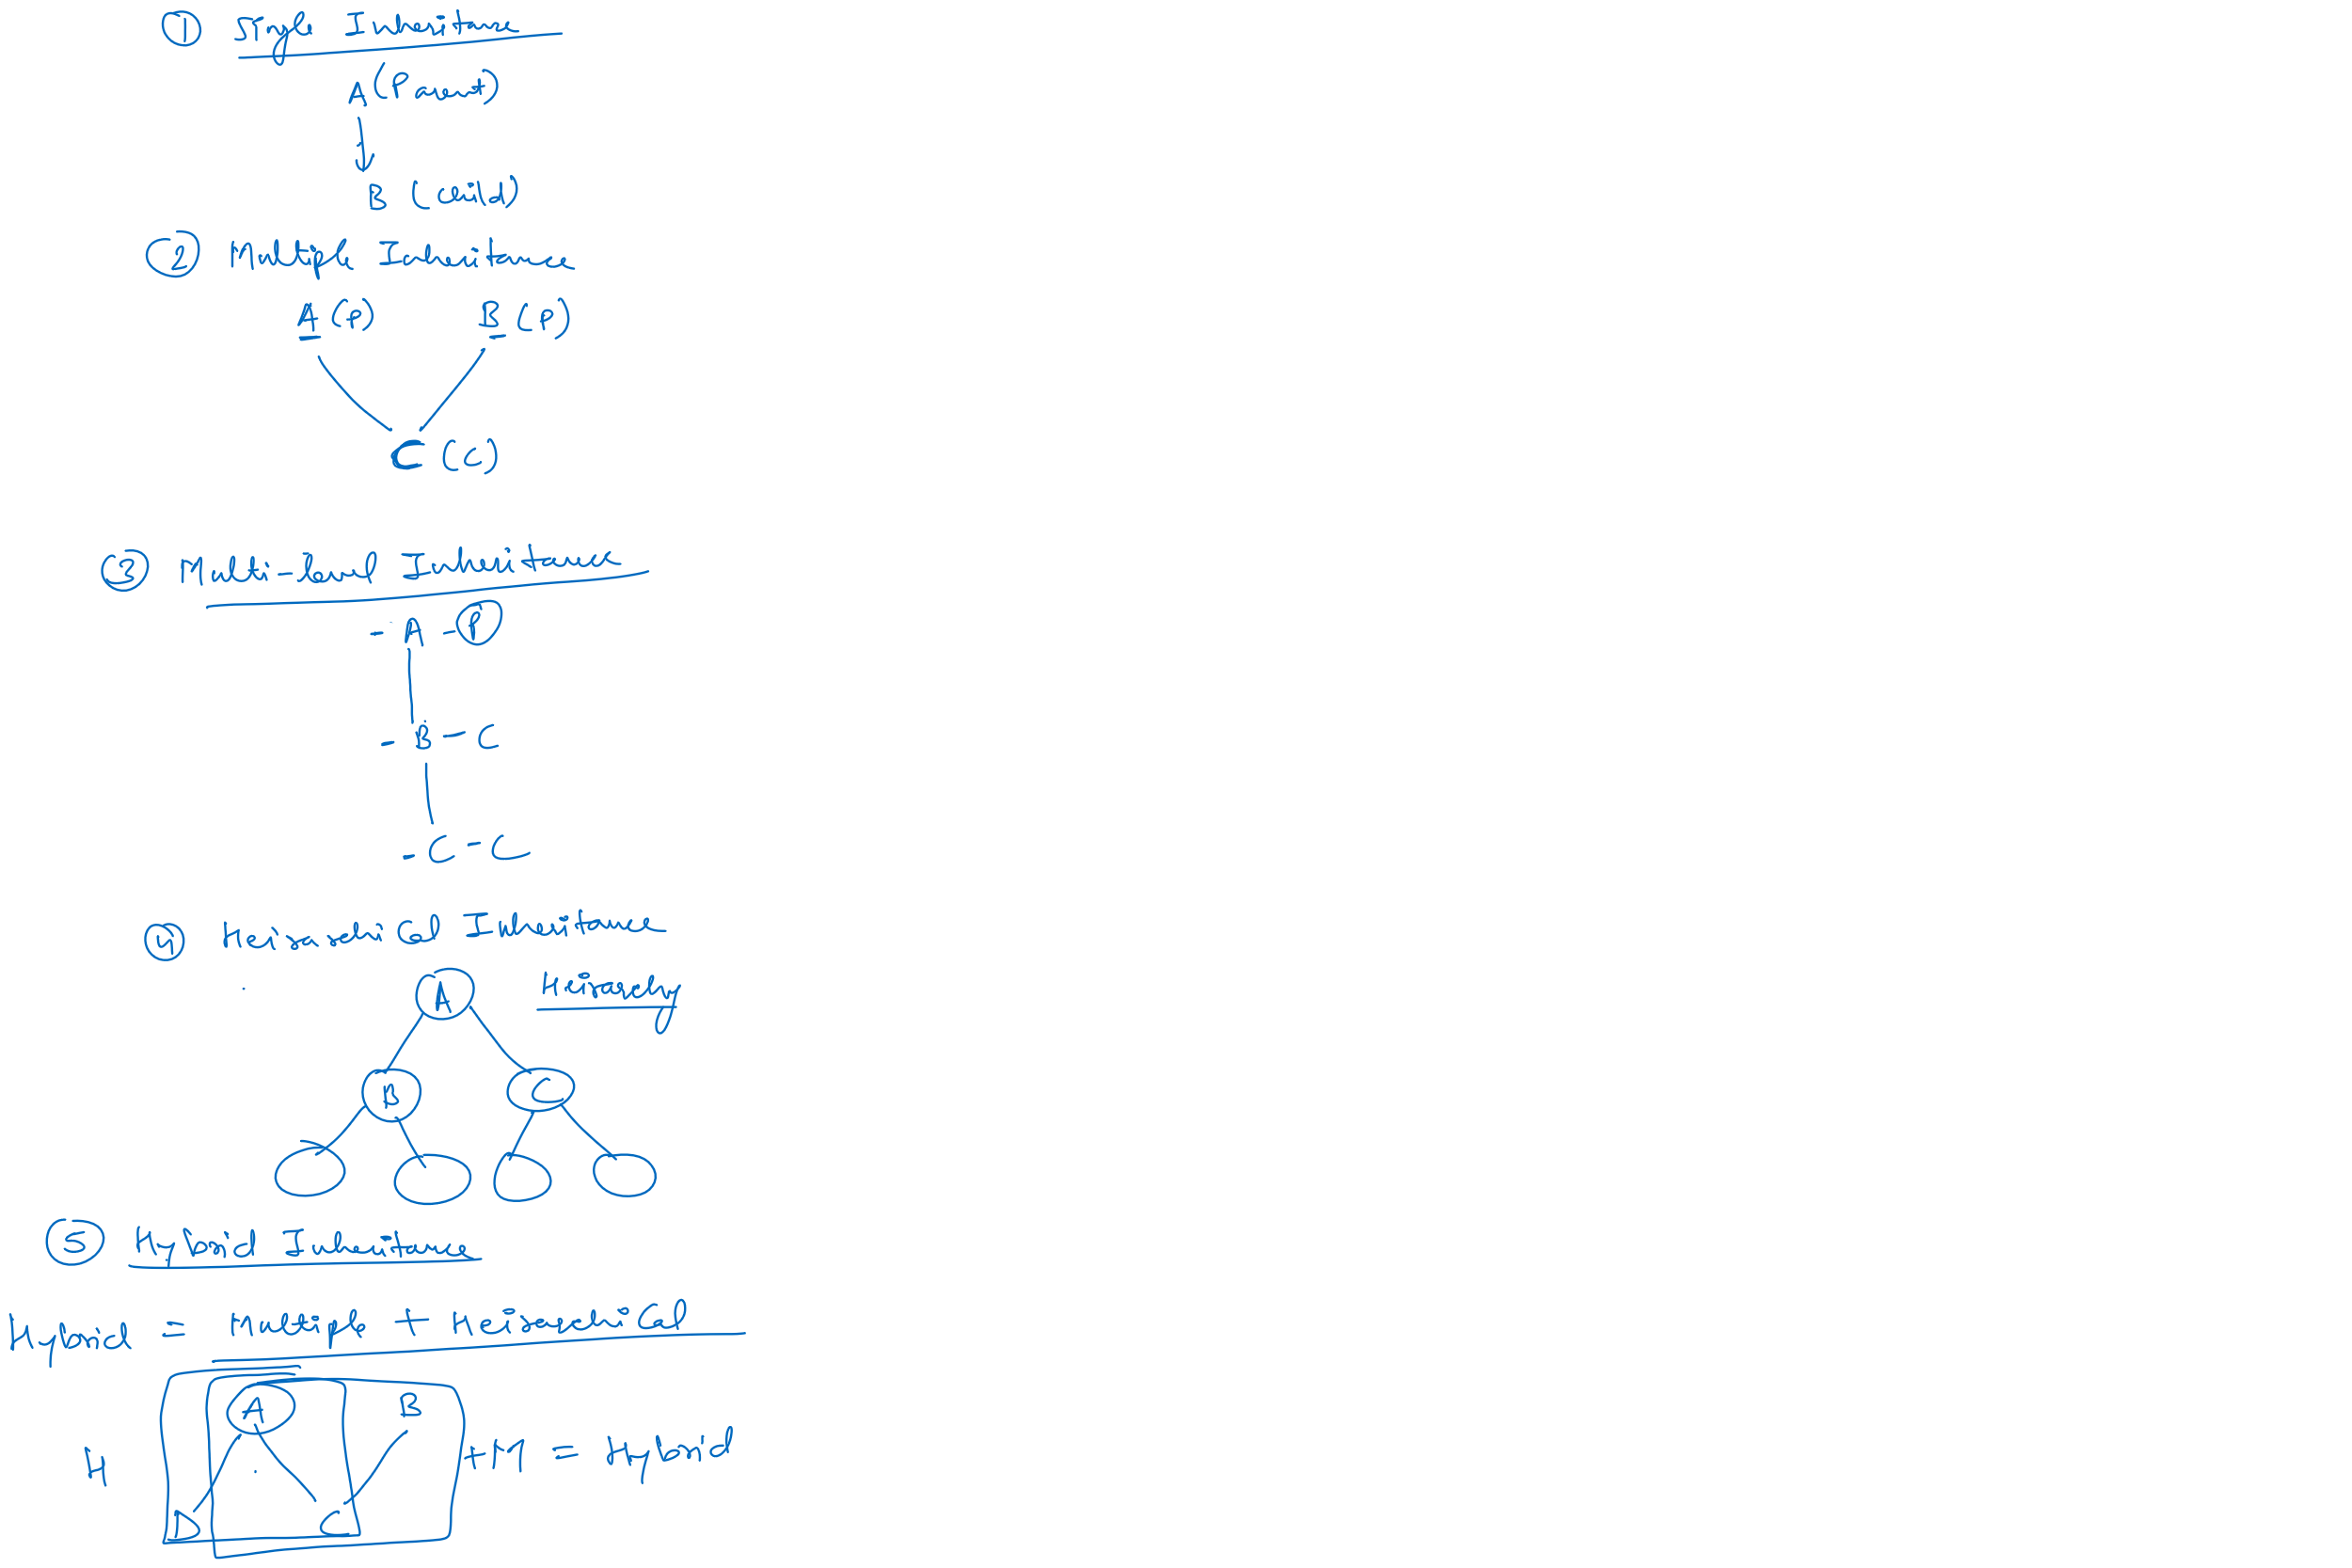 ① Single Inheritance
A (Parent)
B (child)
② Multiple Inheritance
A (P) B (P)
C (C)
③ Multi-level Inheritance
- A - P
- B - C
- C - C
④ Heirarchical Inheritance
A Heirarchy
B C
⑤ Hybrid Inheritance
Hybrid = Multiple + Heirarchical
A B
H + M = Hybrid
D C